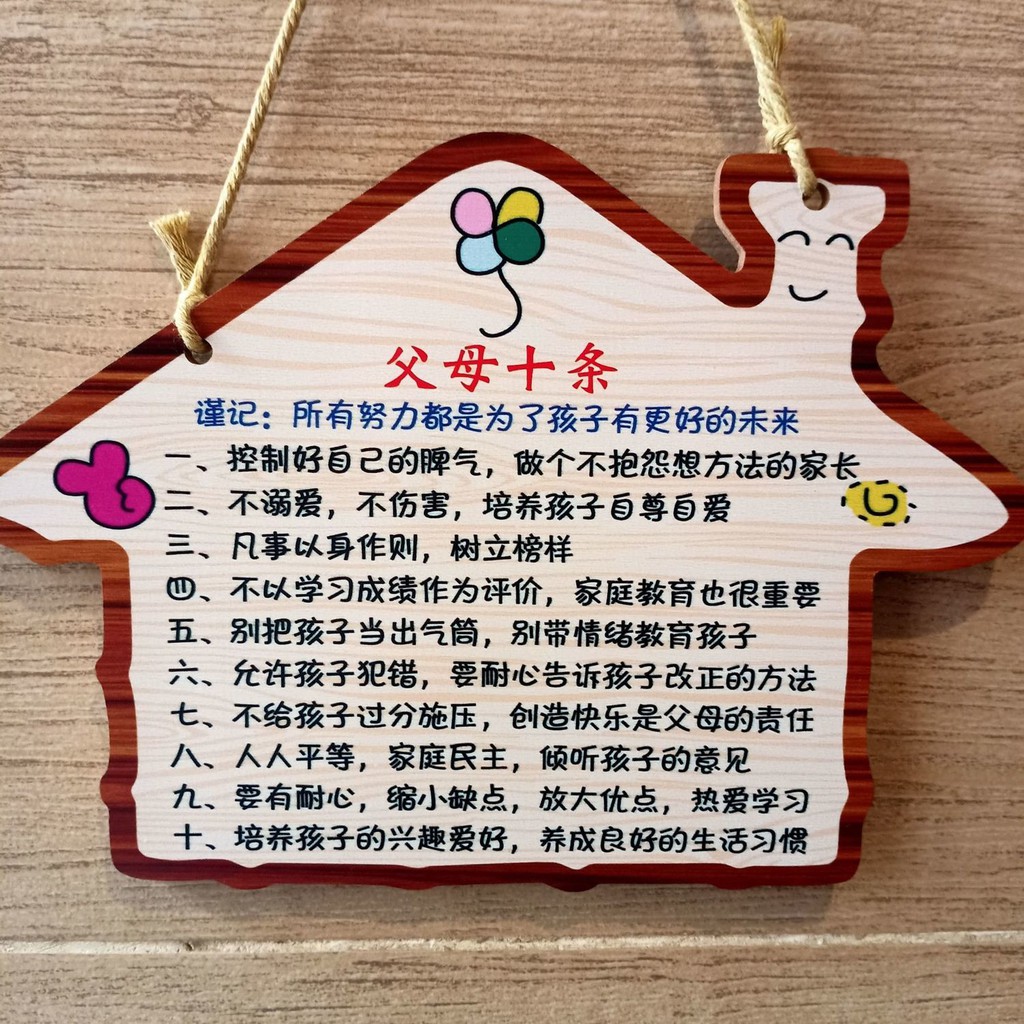 父母十条
谨记：所有努力都是为了孩子有更好的未来
一、控制好自己的脾气，做个不抱怨想方法的家长
二、不溺爱，不伤害，培养孩子自尊自爱
三、凡事以身作则，树立榜样
四、不以学习成绩作为评价，家庭教育也很重要
五、别把孩子当出气筒，别带情绪教育孩子
六、允许孩子犯错，要耐心告诉孩子改正的方法
七、不给孩子过分施压，创造快乐是父母的责任
八、人人平等，家庭民主，倾听孩子的意见
九、要有耐心，缩小缺点，放大优点，热爱学习
十、培养孩子的兴趣爱好，养成良好的生活习惯